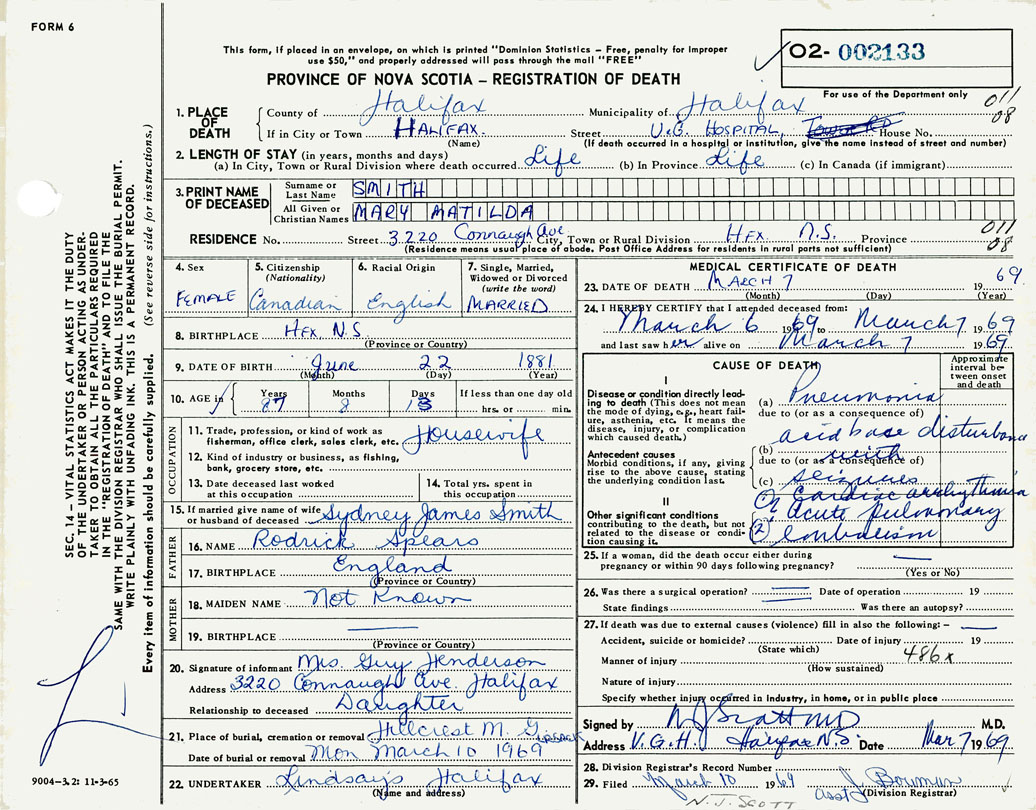 FORM 6
This form, if placed in an envelope, on which is printed "Dominion Statistics – Free, penalty for improper
use $50," and properly addressed will pass through the mail "FREE"
O2- 002133
PROVINCE OF NOVA SCOTIA – REGISTRATION OF DEATH
For use of the Department only
011
08
1. PLACE OF DEATH
County of Halifax Municipality of Halifax
If in City or Town HALIFAX. Street V.G. HOSPITAL, House No.
(Name) (If death occurred in a hospital or institution, give the name instead of street and number)
2. LENGTH OF STAY (in years, months and days)
(a) In City, Town or Rural Division where death occurred Life (b) In Province Life (c) In Canada (if immigrant)
3. PRINT NAME OF DECEASED
Surname or Last Name SMITH
All Given or Christian Names MARY MATILDA
RESIDENCE No. Street 3220 Connaugh Ave City, Town or Rural Division HFX. N.S. Province
011
08
(Residence means usual place of abode. Post Office Address for residents in rural parts not sufficient)
4. Sex
FEMALE
5. Citizenship
(Nationality)
Canadian
6. Racial Origin
English
7. Single, Married,
Widowed or Divorced
(write the word)
MARRIED
8. BIRTHPLACE HFX. N.S.
(Province or Country)
9. DATE OF BIRTH June 22 1881
(Month) (Day) (Year)
10. AGE in Years Months Days If less than one day old
87 8 13 hrs. or min.
OCCUPATION
11. Trade, profession, or kind of work as
fisherman, office clerk, sales clerk, etc. Housewife
12. Kind of industry or business, as fishing,
bank, grocery store, etc.
13. Date deceased last worked
at this occupation
14. Total yrs. spent in
this occupation
15. If married give name of wife
or husband of deceased Sydney James Smith
FATHER
16. NAME Rodrick Spears
17. BIRTHPLACE England
(Province or Country)
MOTHER
18. MAIDEN NAME Not Known
19. BIRTHPLACE
(Province or Country)
20. Signature of informant Mrs. Guy Henderson
Address 3220 Connaugh Ave. Halifax
Relationship to deceased Daughter
21. Place of burial, cremation or removal Hillcrest M. G
Date of burial or removal Mon March 10 1969
22. UNDERTAKER Lindsay's Halifax
(Name and address)
MEDICAL CERTIFICATE OF DEATH
23. DATE OF DEATH MARCH 7 19 69.
(Month) (Day) (Year)
24. I HEREBY CERTIFY that I attended deceased from:
March 6 1969 to March 7 1969
and last saw her alive on March 7 1969
CAUSE OF DEATH
Approximate
interval be-
tween onset
and death
I
Disease or condition directly lead-
ing to death (This does not mean
the mode of dying, e.g., heart fail-
ure, asthenia, etc. It means the
disease, injury, or complication
which caused death.)
(a) Pneumonia
due to (or as a consequence of)
acid base disturbance
Antecedent causes
Morbid conditions, if any, giving
rise to the above cause, stating
the underlying condition last.
(b) with
due to (or as a consequence of)
(c) seizures
II
Other significant conditions
contributing to the death, but not
related to the disease or condi-
tion causing it.
Cardiac arrhythmia
acute pulmonary
(2) embolism
25. If a woman, did the death occur either during
pregnancy or within 90 days following pregnancy?
(Yes or No)
26. Was there a surgical operation? Date of operation 19
State findings Was there an autopsy?
27. If death was due to external causes (violence) fill in also the following: –
Accident, suicide or homicide? Date of injury 19
(State which) 486x
Manner of injury
(How sustained)
Nature of injury
Specify whether injury occurred in industry, in home, or in public place
Signed by N J Scott MD M.D.
Address V.G.H. Halifax N.S. Date Mar 7 1969
28. Division Registrar's Record Number
29. Filed March 10 1969 J. Bowman
asst (Division Registrar)
N.J. SCOTT
SEC. 14 – VITAL STATISTICS ACT MAKES IT THE DUTY
OF THE UNDERTAKER OR PERSON ACTING AS UNDER-
TAKER TO OBTAIN ALL THE PARTICULARS REQUIRED
IN THE "REGISTRATION OF DEATH" AND TO FILE THE
SAME WITH THE DIVISION REGISTRAR WHO SHALL ISSUE THE BURIAL PERMIT.
WRITE PLAINLY WITH UNFADING INK. THIS IS A PERMANENT RECORD.
Every item of information should be carefully supplied. (See reverse side for instructions.)
9004-3.2: 11-3-65